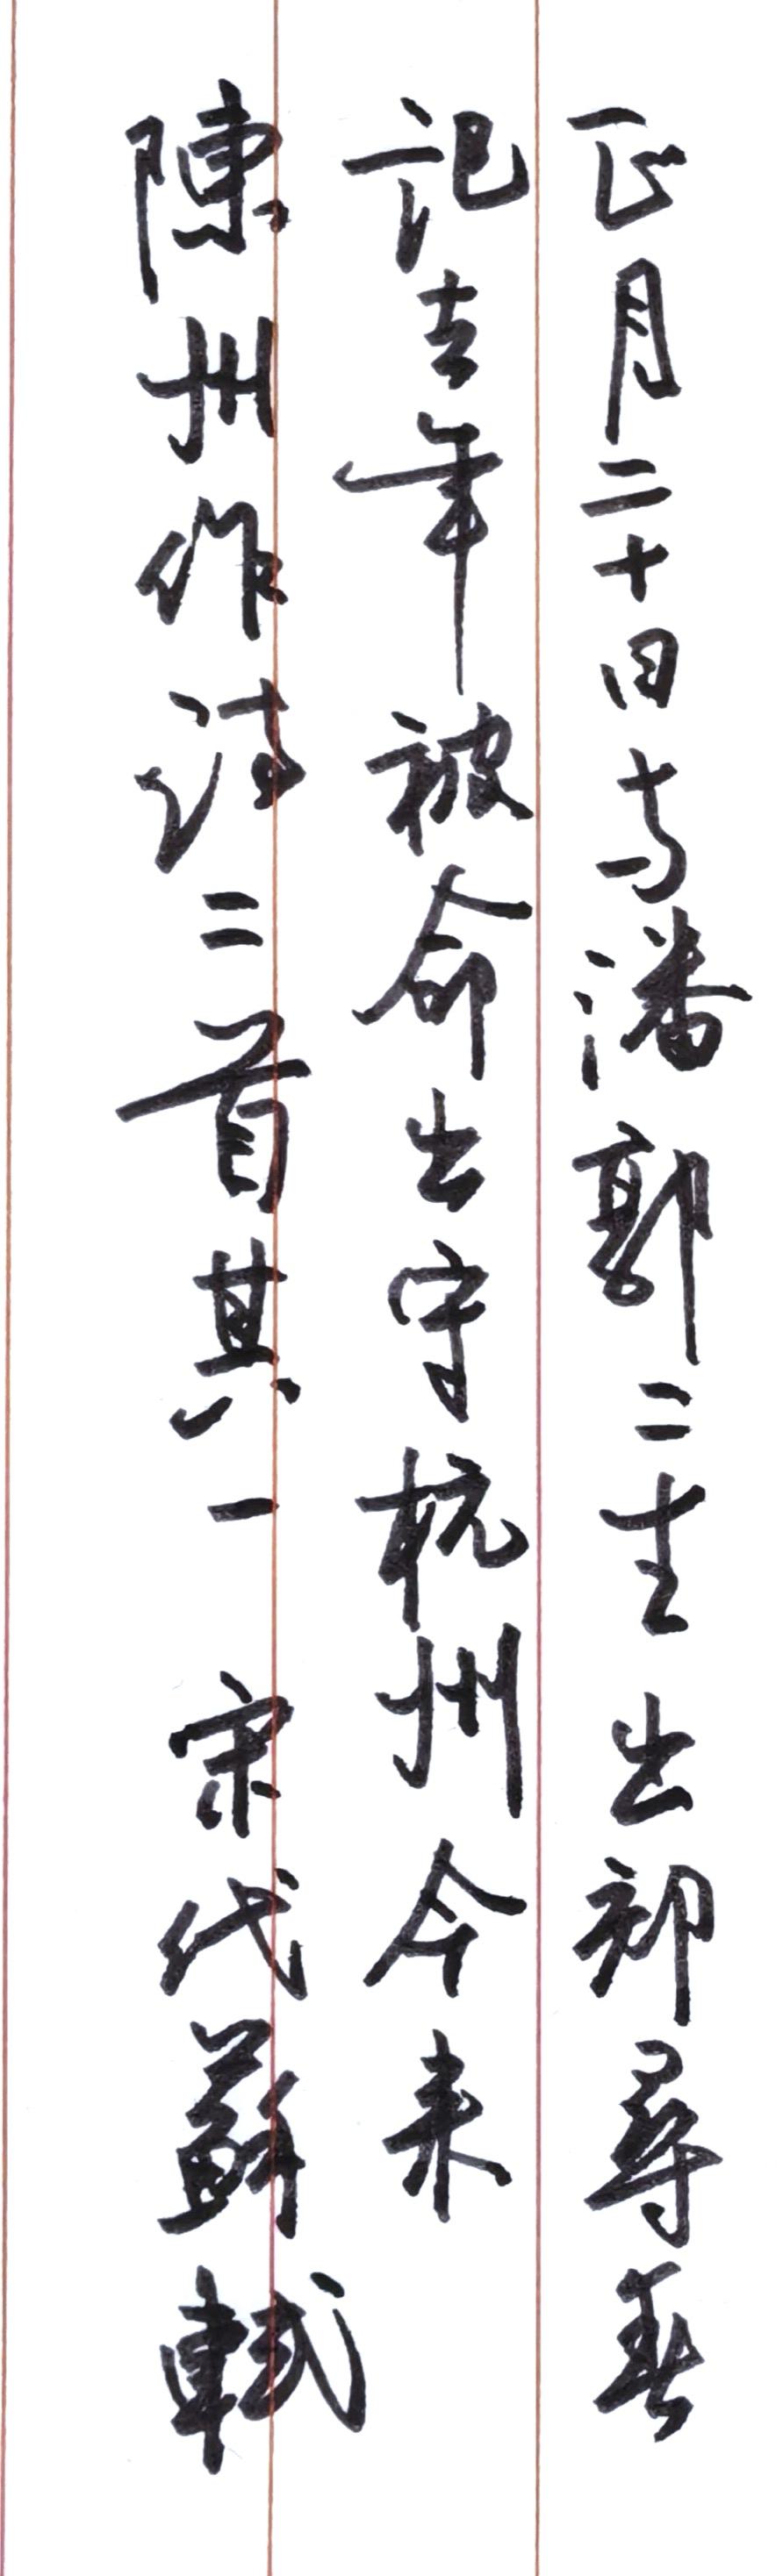 正月二十日与潘郭二生出郊尋春
記去年被命出守杭州今来
陳州作詩二首其一 宋代蘇軾